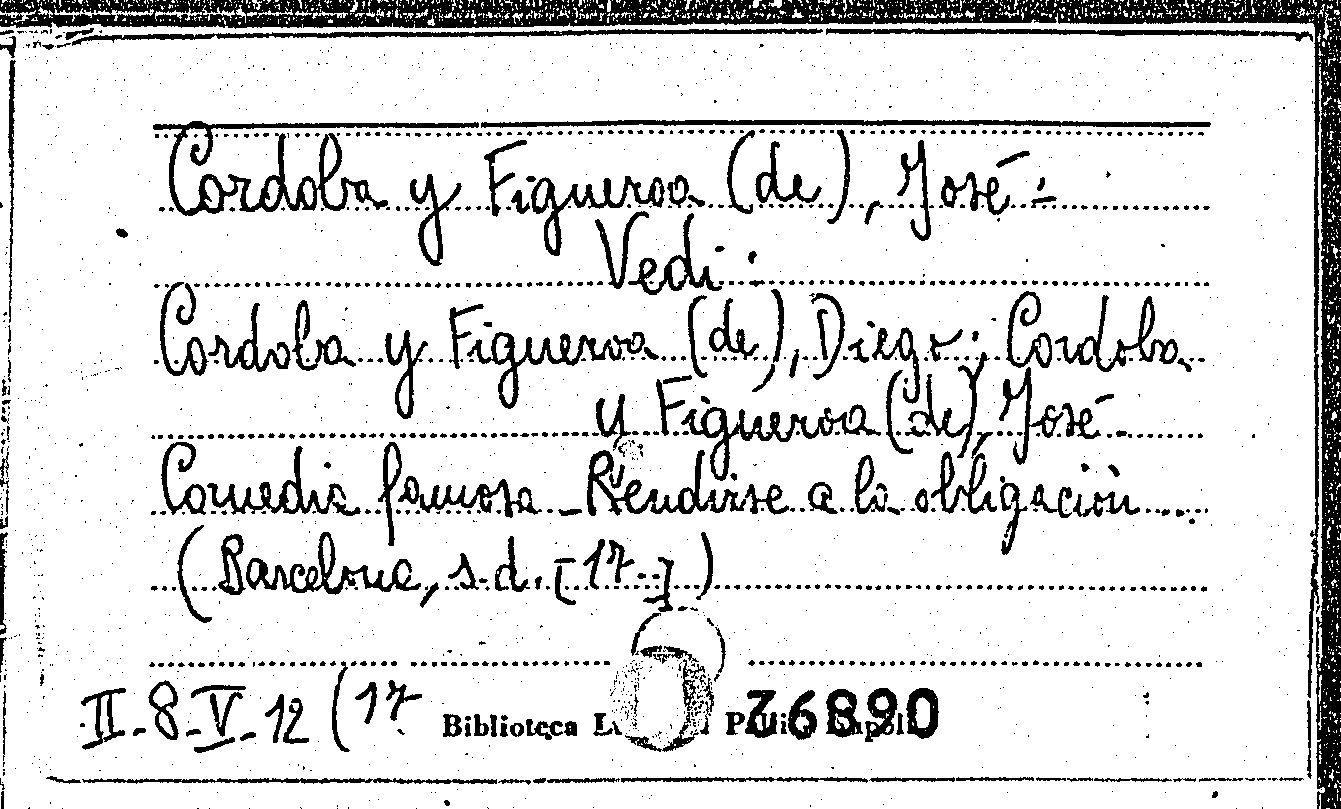 Cordoba y Figueroa (de), José :
Vedi :
Cordoba y Figueroa (de), Diego ; Cordoba
y Figueroa (de), José -
Comedia famosa - Rendirse a la obligaciòn ...
(Barcelona, s.d. [17..])
II-8-V-12 (17
Biblioteca 36890